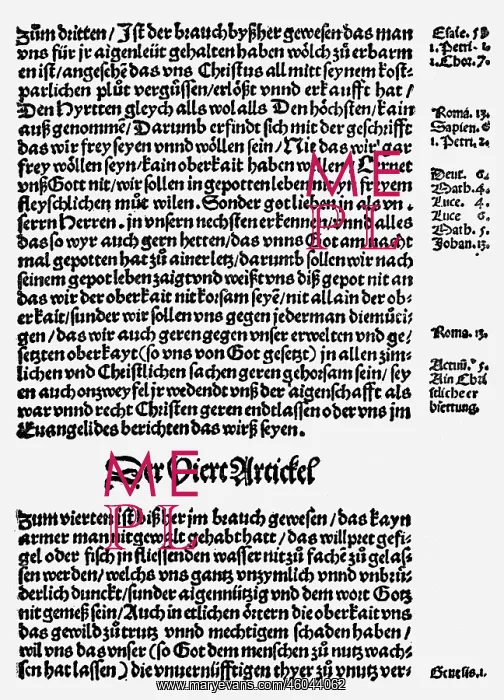 Zum dritten / Ist der brauch byßher gewesen das man
vns für jr aigen leüt gehalten haben wölch zů erbarm
en ist / angesehē das vns Christus all mitt seynem kost-
parlichen plůt vergüssen / erlößt vnnd erkaufft hat /
Den Hyrtten gleych alls wol alls Den höchsten / kain
auß genommē / Darumb erfindt sich mit der geschrifft
das wir frey seyen vnnd wöllen sein / Nit das wir gar
frey wöllen seyn / kain oberkait haben wellen / Lernet
vnß Gott nit / wir sollen in gepotten leben nit yn freyem
fleyschlichen můt wilen. Sonder got lieben jn als vn
serrn Herren. jn vnsern nechsten erkennen / vnnd alles
das so wyr auch gern hetten / das vnns Got am nacht
mal gepotten hat zů ainer letz / darumb sollen wir nach
seinem gepot leben zaigt vnd weißt vns diß gepot nit an
das wir der oberkait nit korsam seyē / nit allain der ob-
erkait / sunder wir sollen vns gegen jederman diemüti-
gen / das wir auch geren gegen vnser erwelten vnd ge /
setzten oberkayt (so vns von Got gesetzt) jn allen zim-
lichen vnd Christlichen sachen geren gehorsam sein / sey
en auch onzweyfel jr wedendt vnß der aigenschafft als
war vnnd recht Christen geren endtlassen oder vns jm
Euangelides berichten das wirß seyen.
Esaie. 53
1. Petri. 1.
1. Chor. 7.
Romā. 13.
Sapien. 6
1. Petri. 2.
Deut. 6.
Math. 4.
Luce. 4.
Luce 6.
Math. 5.
Johan. 13.
Roma. 13.
Actuū. 5.
Ain Chri
stlich er
biettung.
Der Viert Artickel
Zum vierten ist bißher jm brauch gewesen / das kayn
armer man nit gewalt gehabt hatt / das willpret gefi-
gel oder fisch jn fliessenden wasser nit zů fachē zů gelas
sen werden / welchs vns gantz vnzymlich vnnd vnbrü-
derlich dunckt / sunder aigennützig vnd dem wort Gotz
nit gemeß sein / Auch in etlichen ortern die oberkait vns
das gewild zů trutz vnnd mechtigem schaden haben /
wil vns das vnser (so Got dem menschen zů nutz wach-
sen hat lassen) die vnuernüfftigen thyer zů vnutz ver-
Genesis. 1.
ME
PL
ME
PL
www.maryevans.com/46044062